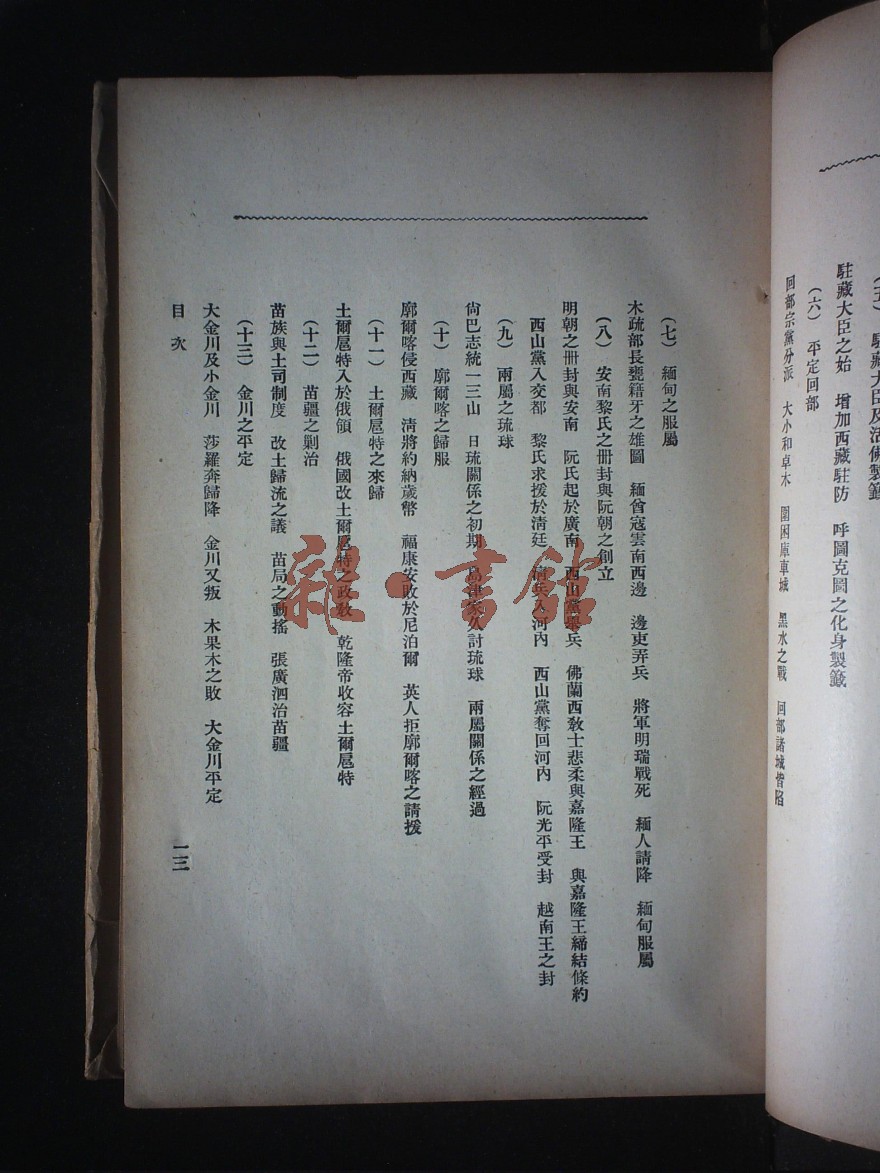 （五） 駐藏大臣及活佛製籤
駐藏大臣之始 增加西藏駐防 呼圖克圖之化身製籤
（六） 平定回部
回部宗黨分派 大小和卓木 圍困庫車城 黑水之戰 回部諸城皆陷
（七） 緬甸之服屬
木疏部長甕籍牙之雄圖 緬酋寇雲南西邊 邊吏弄兵 將軍明瑞戰死 緬人請降 緬甸服屬
（八） 安南黎氏之冊封與阮朝之創立
明朝之冊封與安南 阮氏起於廣南 西山黨舉兵 佛蘭西敎士悲柔與嘉隆王 與嘉隆王締結條約
西山黨入交都 黎氏求援於淸廷 淸兵入河內 西山黨奪回河內 阮光平受封 越南王之封
（九） 兩屬之琉球
尙巴志統一三山 日琉關係之初期 島津家久討琉球 兩屬關係之經過
（十） 廓爾喀之歸服
廓爾喀侵西藏 淸將約納歲幣 福康安敗於尼泊爾 英人拒廓爾喀之請援
（十一） 土爾扈特之來歸
土爾扈特入於俄領 俄國改土爾扈特之政敎 乾隆帝收容土爾扈特
（十二） 苗疆之剿治
苗族與土司制度 改土歸流之議 苗局之動搖 張廣泗治苗疆
（十三） 金川之平定
大金川及小金川 莎羅奔歸降 金川又叛 木果木之敗 大金川平定
目次 一三
雜·書館